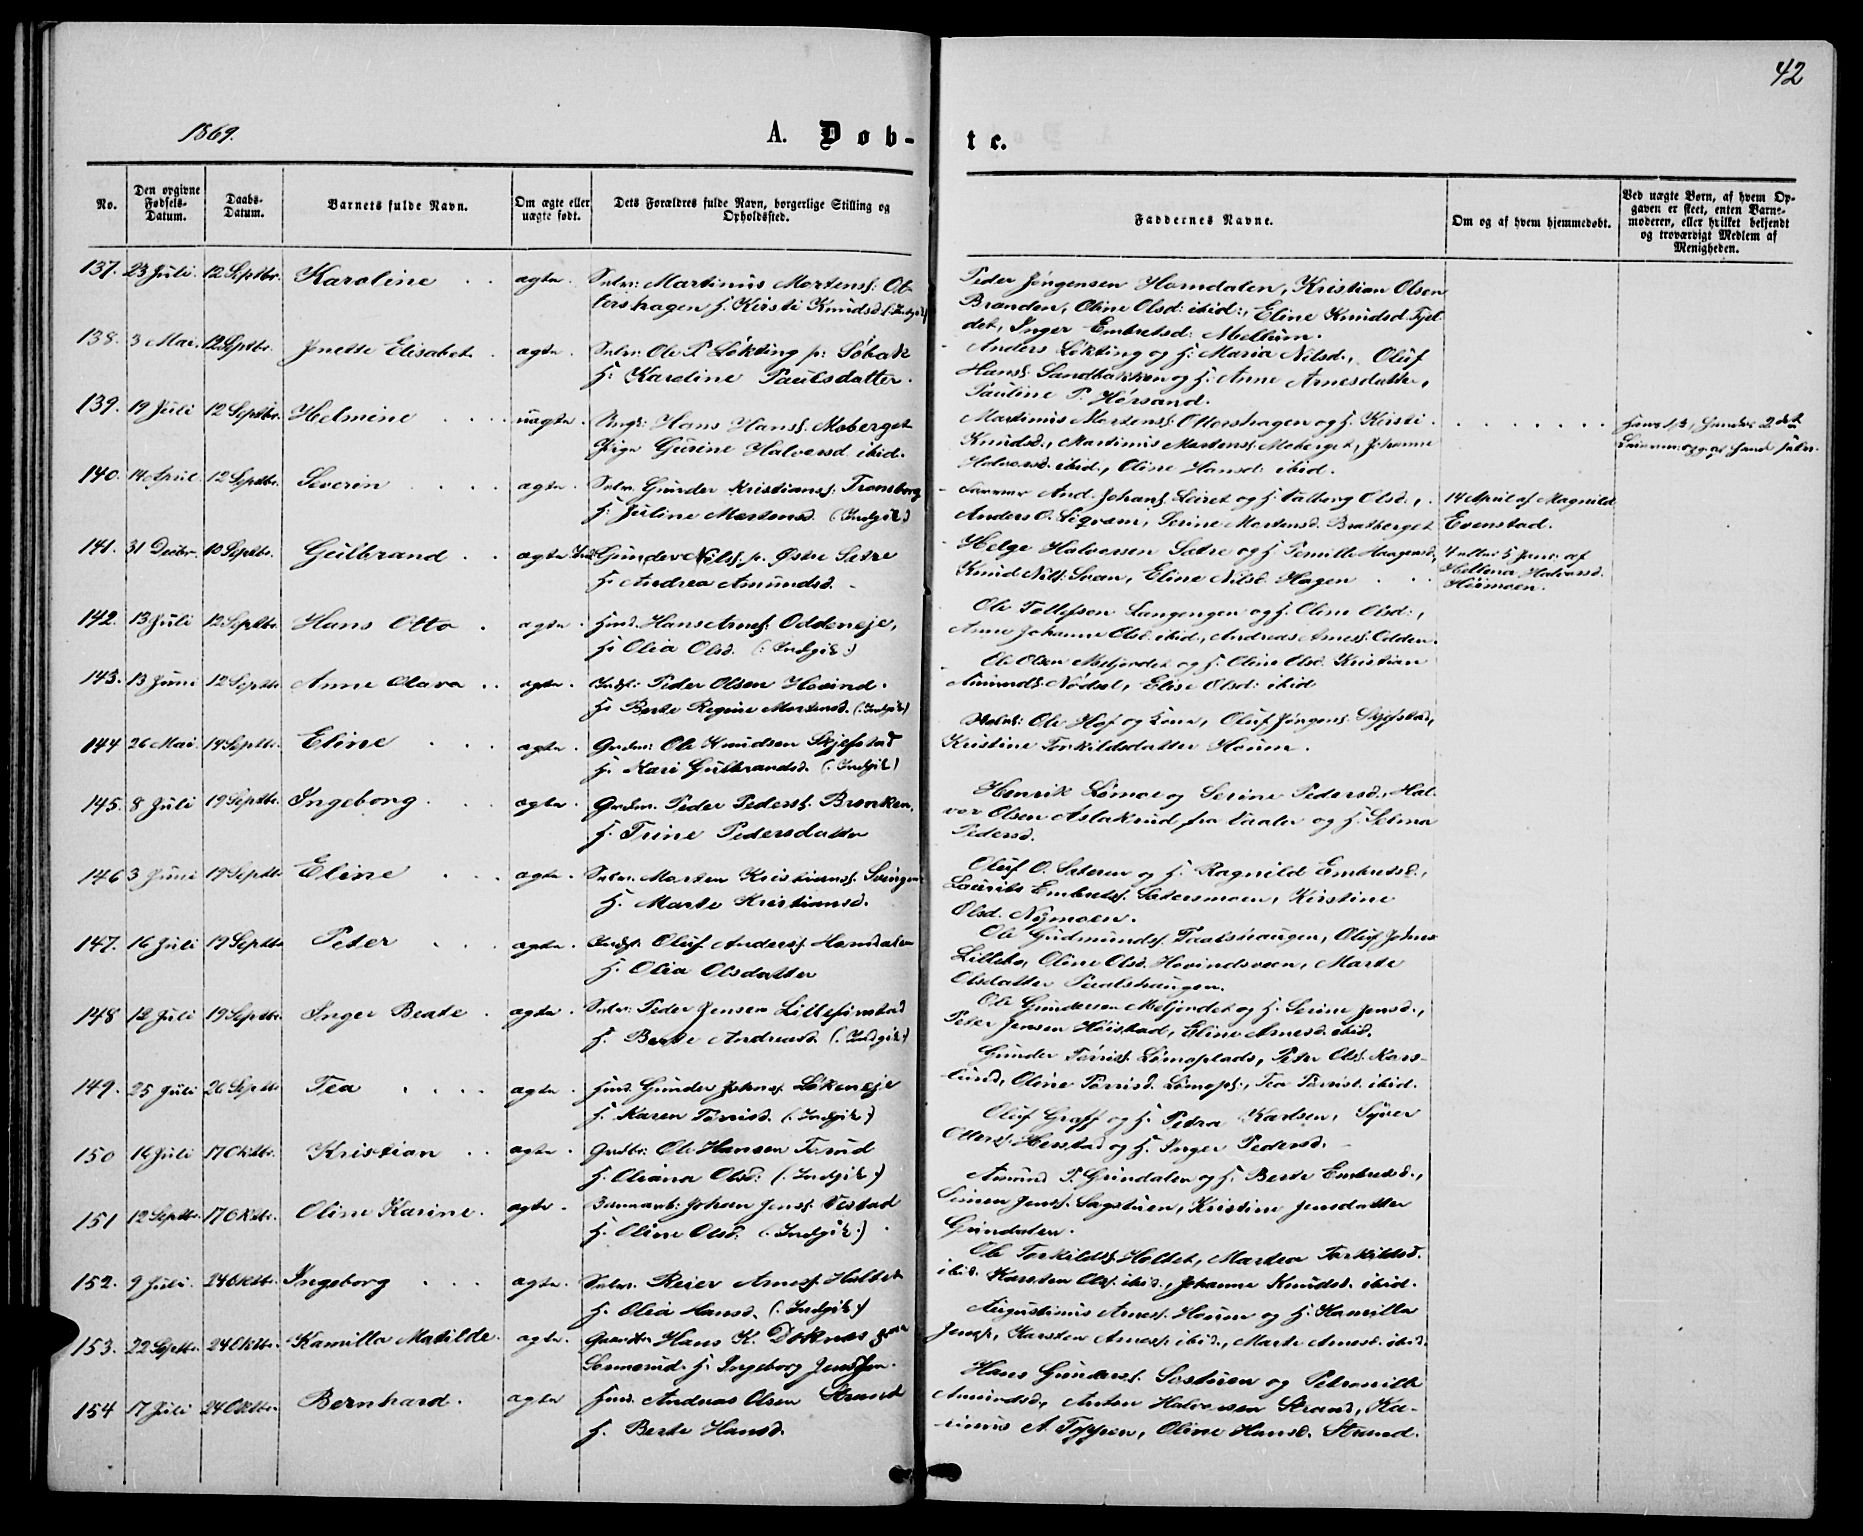 42
1869.
A. Døb-
te.
No.
Den opgivne Fødsels-Datum.
Daabs-Datum.
Barnets fulde Navn.
Om ægte eller uægte født.
Dets Forældres fulde Navn, borgerlige Stilling og Opholdssted.
Faddernes Navne.
Om og af hvem hjemmedøbt.
Ved uægte Børn, af hvem Opgaven er skeet, enten Barnemoderen, eller hvilket beljendt og troværdigt Medlem af Menigheden.
137. 23 Juli 12 Septbr. Karoline ægte. Selv: Martinius Mortens:
tershagen h. Kirsti Knudsd (: Indgik)
Peder Jörgensen Horndalen, Kristian Olsen
Branden, Oline Olsd: ibid:, Eline Knudsd. Fjel
det, Inger Embretsd: Mellum.
138. 3 Mai 12 Septbr. Jenette Elisabet ægte. Selv: Ole P. Lökting p: Söbak
h: Karoline Paulsdatter.
Anders Lökting og h: Maria Nilsd., Oluf
Hans: Sandbakken og h: Anne Arnesdatter,
Pauline P. Hörsand.
139. 19 Juli 12 Septbr. Helmine uægte. Ungk: Hans Hans: Moberget
Pige Gurine Halvorsd ibid.
Martinius Martens: Ottershagen og h. Kirsti
Knudsd., Martinius Martens: Moberget, Johanne
Halvorsd. ibid., Oline Hansd: ibid.
140. 14 April 12 Septbr. Severin ægte. Selv: Gunder Kristians: Transberg
h: Juline Martensd. (: Indgik)
And. Johans: Leiret og h. Valborg Olsd.,
Anders O. Löqvam, Serine Martensd. Bratberget
14 April af Magnild
Evenstad.
141. 31 Decbr. 10 Septbr. Gulbrand ægte Gunder Nils: p. Östre Sætre
h. Andrea Amundsd.
Helge Halvorsen Sætre og h. Pernille Haagensd,
Knud Nils: Svan, Eline Nilsd. Hagen
4 eller 5 Janr. af
Hellena Halvorsd.
Höimoen.
142. 13 Juli 12 Septbr. Hans Otto ægte. Husd. Hans Arnes: Oddeneje,
h: Olia Olsd. (: Indgik:)
Ole Tollefsen Langengen og h. Oline Olsd:,
Anne Johanne Olsd. ibid., Andreas Arnes: Odden.
143. 13 Juni 12 Septbr Anne Olava ægte. Inds: Peder Olsen Hovind.
h: Berte Regine Martensd. (: Indgik)
Ole Olsen Mefjordet og h. Oline Olsd. Kristian
Amunds: Nödset, Elise Olsd: ibid
144 26 Mai 19 Septbr. Eline ægte. Grdm: Ole Knudsen Skjefstad
h. Mari Gulbrandsd. (: Indgik)
Ole Hof og Kone, Oluf Jörgens: Skjefstad,
Kristine Torkildsdatter Houm.
145. 8 Juli 19 Septbr. Ingeborg ægte. Grdm. Peder Peders: Brenken,
h. Trine Pedersdatter
Henrik Lömoe og Serine Pedersd., Hal
vor Olsen Aslakrud fra Vaaler og h. Selma
Pedersd.
146 3 Juni 19 Septbr Eline ægte. Selv. Morten Kristians: Svingen
h. Marte Kristiansd.
Oluf O. Sæteren og h. Ragnild Embretsd.,
Laurits Embrets: Sætersmoen, Kirstine
Olsd. Nymoen.
147. 16 Juli 19 Septbr Peter ægte. Inds: Oluf Anders: Horndalen
h. Olia Olsdatter
Ole Gudmunds: Paalshaugen, Oluf Johns
Lillebo, Oline Olsd. Hovindsveen, Marte
Olsdatter Paalshaugen.
148 12 Juli 19 Septbr Inger Beate ægte. Selv: Peder Jensen Lillefinstad
h. Berte Andreasd. (: Indgik)
Ole Gundersen Mefjordet og h. Serine Jensd.,
Peter Jensen Höistad, Eline Arnesd. ibid.
149. 25 Juli 26 Septbr Tea ægte. Husd. Gunder Johns: Lökeneje
h. Karen Törrisd. (: Indgik:)
Gunder Törris: Lömoplads, Peter Ols: Kars-
lund, Oline Törrisd. Lömopl:, Tea Törrisd. ibid.
150 16 Juli 17 Oktbr. Kristian ægte. Grdbr: Ole Hansen Terud
h. Oliana Olsd: (: Indgik:)
Oluf Graff og h. Petra Karlsen, Syver
Otters: Herstad og h. Inger Pedersd.
151 12 Septbr. 17 Oktbr. Oline Karine. ægte. Johan Jens: Vestad
h. Oline Olsd. (: Indgik:)
Amund P. Grindalen og h. Berte Embretsd.,
Simen Jens: Sagstuen, Kristine Jensdatter
Grindalen.
152. 9 Juli 24 Oktbr. Ingeborg ægte. Selv. Reier Arnes: Holtet
h. Olia Hansd. (: Indgik:)
Ole Torkilds: Holtet, Martea Torkildsd.
ibid. Karsten Ols: ibid., Johanne Knudsd. ibid.
153. 22 Septbr. 24 Oktbr. Kamilla Matilde. ægte. Hans K. Doknæs paa
Sörmorud. h. Ingeborg
Augustinus Arnes: Houm og h. Kamilla
Jensd., Karsten Arnes: ibid., Marte Arnesd. ibid.
154 17 Juli 24 Oktbr. Bernhard. ægte Husd. Andreas Olsen Strand
h. Berte Hansd.
Hans Gunders: Sostuen og Petronille
Amundsd, Anton Halvorsen Strand, Ka-
rinius A. Toppen, Oline Hansd. Strand.